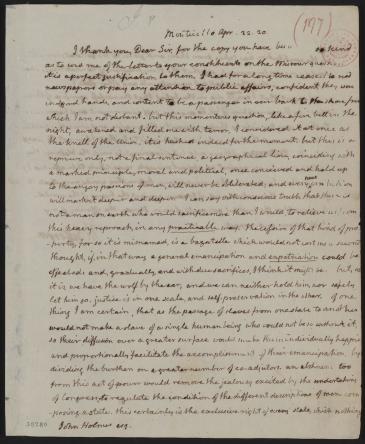 (197)
Monticello Apr. 22. 20
I thank you, Dear Sir, for the copy you have been so kind
as to send me of the letter to your constituents on the Missouri question.
it is a perfect justification to them. I had for a long time ceased to read
newspapers or pay any attention to public affairs, confident they were
in good hands, and content to be a passenger in our bark to the shore from
which I am not distant. but this momentous question, like a fire bell in the
night, awakened and filled me with terror. I considered it at once as
the knell of the Union. it is hushed indeed for the moment. but this is a
reprieve only, not a final sentence. a geographical line, coinciding with
a marked principle, moral and political, once concieved and held up
to the angry passions of men, will never be obliterated; and every new irritation
will mark it deeper and deeper. I can say with conscious truth that there is
not a man on earth who would sacrifice more than I would, to relieve us from
this heavy reproach, in any practicable way. the cession of that kind of pro-
perty, for so it is misnamed, is a bagatelle which would not cost me a second
thought, if, in that way, a general emancipation and expatriation could be
effected: and, gradually, and with due sacrifices, I think it might be. but, as
it is, we have the wolf by the ear, and we can neither hold him, nor safely
let him go. justice is in one scale, and self-preservation in the other. of one
thing I am certain, that as the passage of slaves from one state to another
would not make a slave of a single human being who would not be so without it,
so their diffusion over a greater surface would make them individually happier
and proportionally facilitate the accomplishment of their emancipation, by
dividing the burthen on a greater number of co-adjutors. an abstinence too
from this act of power would remove the jealousy excited by the undertaking
of Congress, to regulate the condition of the different descriptions of men com-
posing a state. this certainly is the exclusive right of every state, which nothing
John Holmes esq.